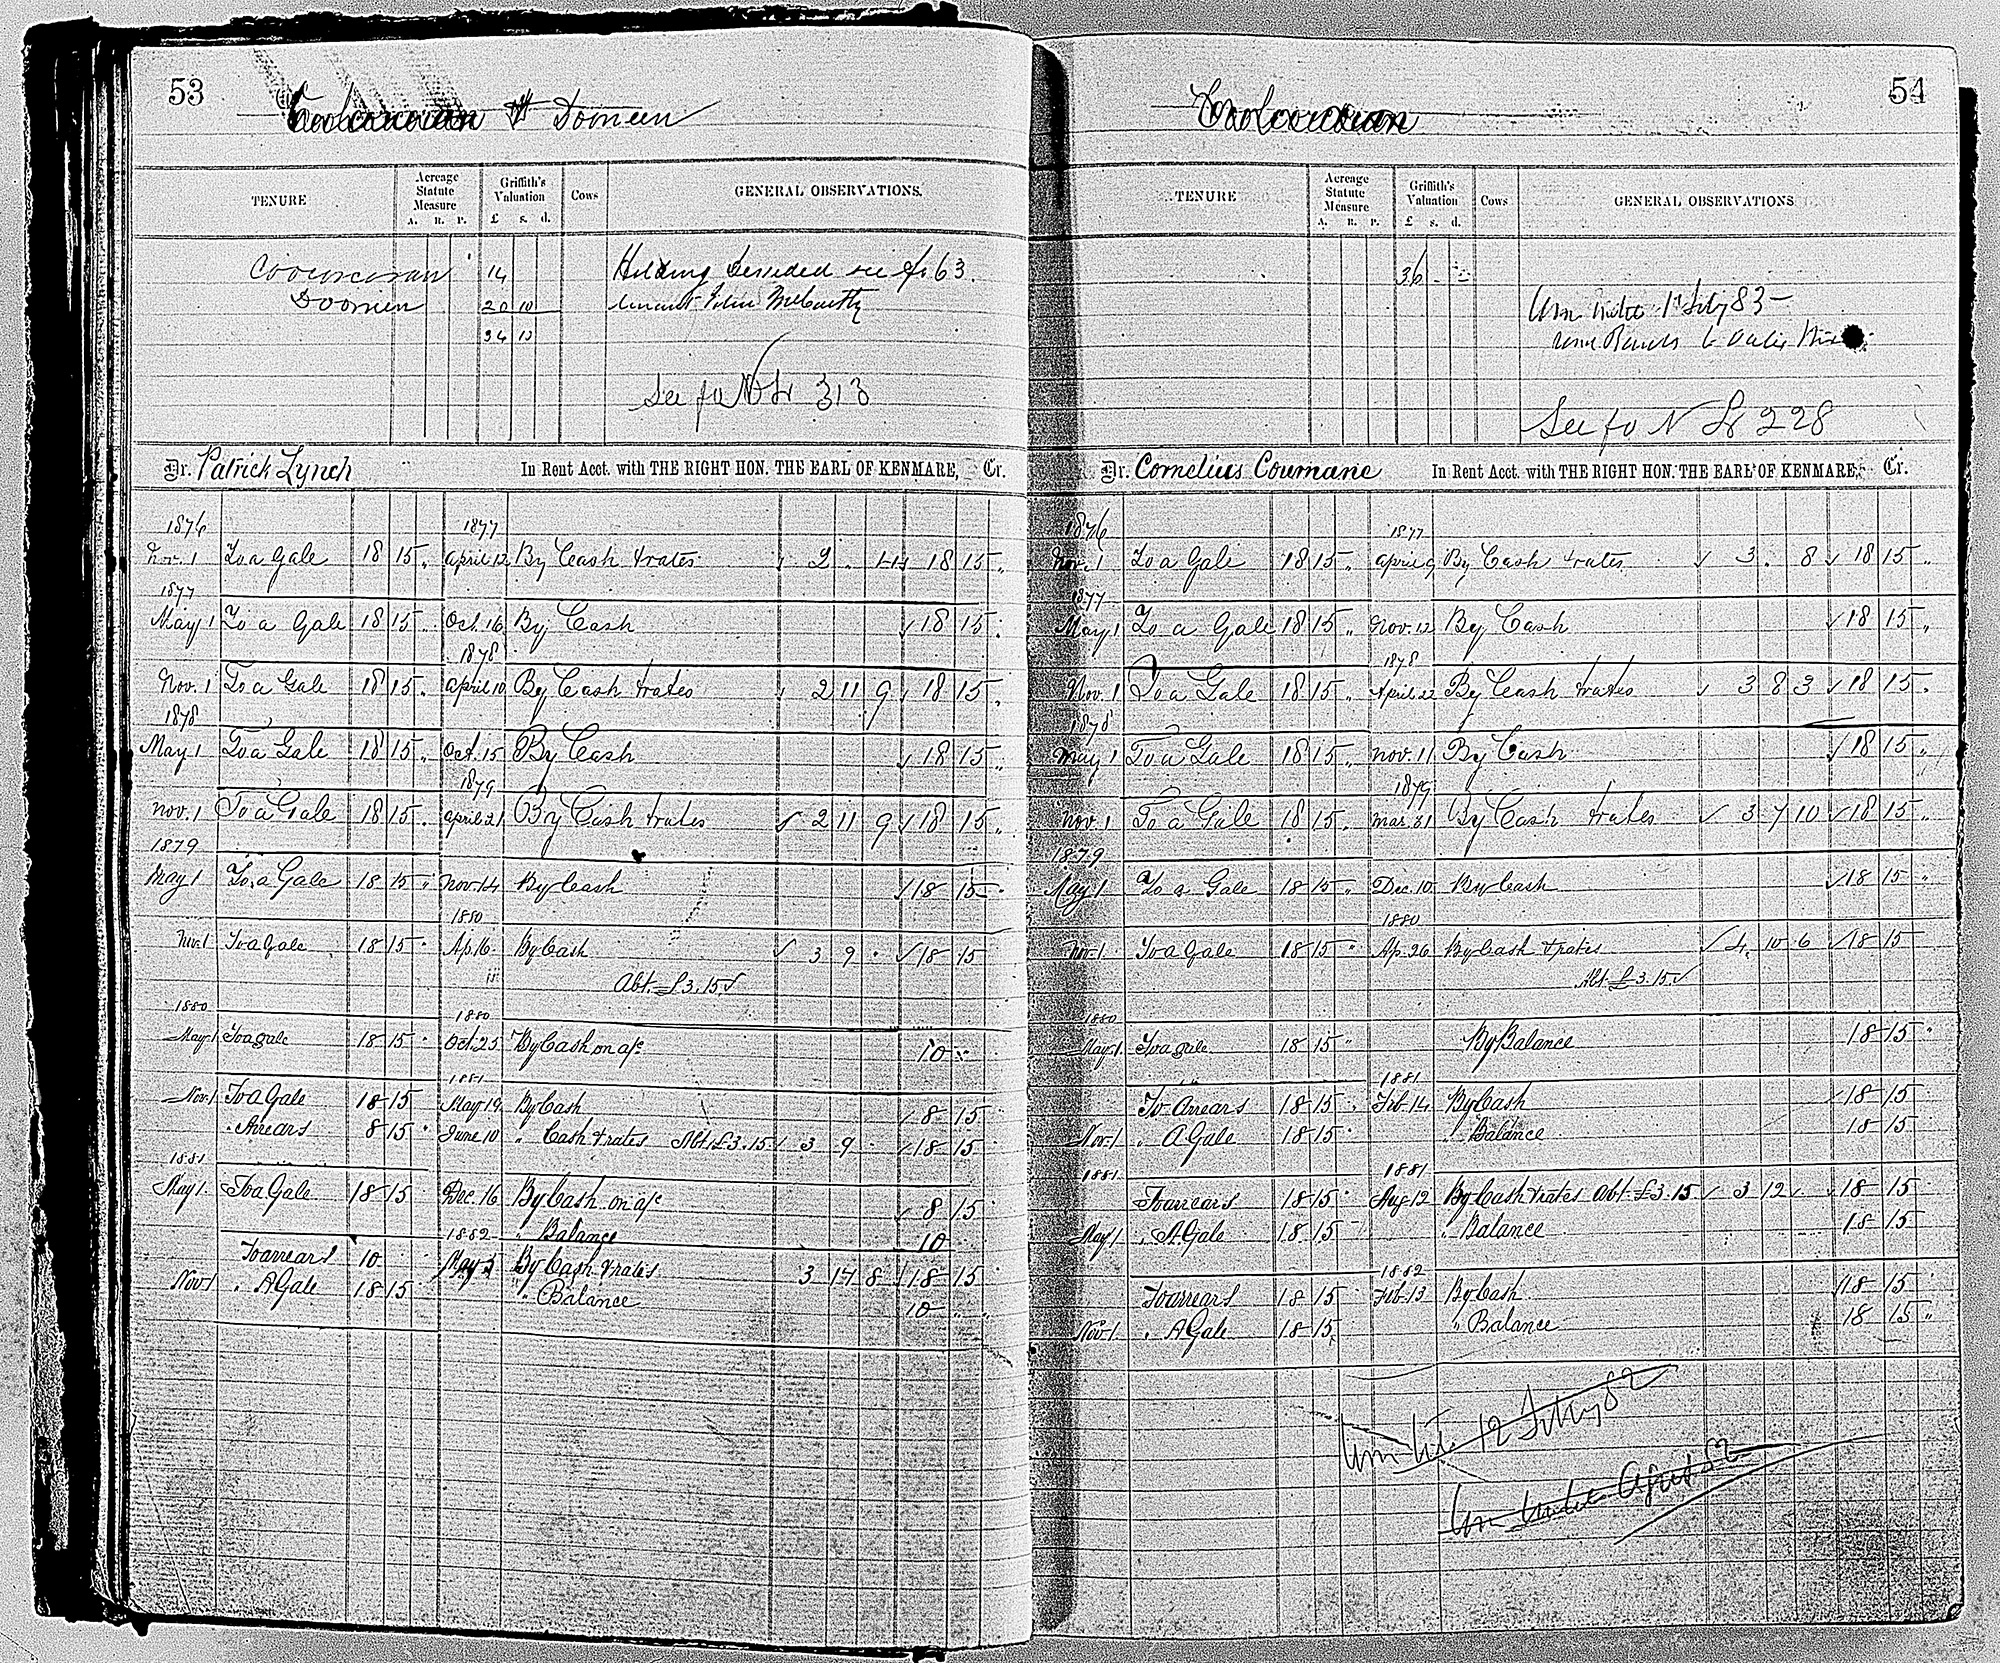 53
& Doomeen
TENURE
Acreage Statute Measure
A. R. P.
Griffith's Valuation
£ s. d.
Cows
GENERAL OBSERVATIONS.
Coorcoran 14
Doomen 20 10
34 10
Holding see fo 63
tenant John McCarthy
See fo N L 313
Dr. Patrick Lynch In Rent Acct. with THE RIGHT HON. THE EARL OF KENMARE, Cr.
1876 1877
Nov. 1 To a Gale 18 15 " April 12 By Cash & rates 18 15 "
1877
May 1 To a Gale 18 15 " Oct. 16 By Cash 18 15 "
1878
Nov. 1 To a Gale 18 15 " April 10 By Cash & rates 2 11 9 18 15 "
1878
May 1 To a Gale 18 15 " Oct. 15 By Cash 18 15 "
1879
Nov. 1 To a Gale 18 15 " April 21 By Cash & rates 2 11 9 18 15 "
1879
May 1 To a Gale 18 15 " Nov. 14 By Cash 18 15 "
1880
Nov. 1 To a Gale 18 15 " Ap. 16 By Cash 3 9 " 18 15
Abt. £3.15
1880 1880
May 1 To a gale 18 15 " Oct. 25 By Cash on a/c 10 "
1881
Nov. 1 To a Gale 18 15 May 19 By Cash 8 15
" Arrears 8 15 " June 10 " Cash & rates Abt. £3.15 3 9 " 18 15
1881
May 1 To a Gale 18 15 Dec. 16 By Cash on a/c 8 15
1882 " Balance 10
To arrears 10 May 5 By Cash & rates 3 17 8 18 15
Nov. 1 " A Gale 18 15 " Balance 10 " "
54
TENURE
Acreage Statute Measure
A. R. P.
Griffith's Valuation
£ s. d.
Cows
GENERAL OBSERVATIONS
36 - -
83
See fo N L 228
Dr. Cornelius Coumane In Rent Acct. with THE RIGHT HON. THE EARL OF KENMARE, Cr.
1876 1877
Nov. 1 To a Gale 18 15 " April 9 By Cash & rates 3 . 8 18 15 "
1877
May 1 To a Gale 18 15 " Nov. 12 By Cash 18 15 "
1878
Nov. 1 To a Gale 18 15 " April 22 By Cash & rates 3 8 3 18 15 "
1878
May 1 To a Gale 18 15 " Nov. 11 By Cash 18 15 "
1879
Nov. 1 To a Gale 18 15 " Mar. 31 By Cash & rates 3 7 10 18 15 "
1879
May 1 To a Gale 18 15 " Dec. 10 By Cash 18 15 "
1880
Nov. 1 To a Gale 18 15 " Ap. 26 By Cash & rates 4 10 6 18 15
Abt. £3.15
1880
May 1 To a gale 18 15 " By Balance 18 15 "
1881
To Arrears 18 15 " Feb. 14 By Cash 18 15 "
Nov. 1 " A Gale 18 15 " " Balance 18 15
1881 1881
To arrears 18 15 " Aug. 12 By Cash & rates Abt. £3.15 3 12 " 18 15 "
May 1 " A Gale 18 15 " Balance 18 15
1882
To arrears 18 15 " Feb. 13 By Cash 18 15 "
Nov. 1 " A Gale 18 15 " Balance 18 15 "